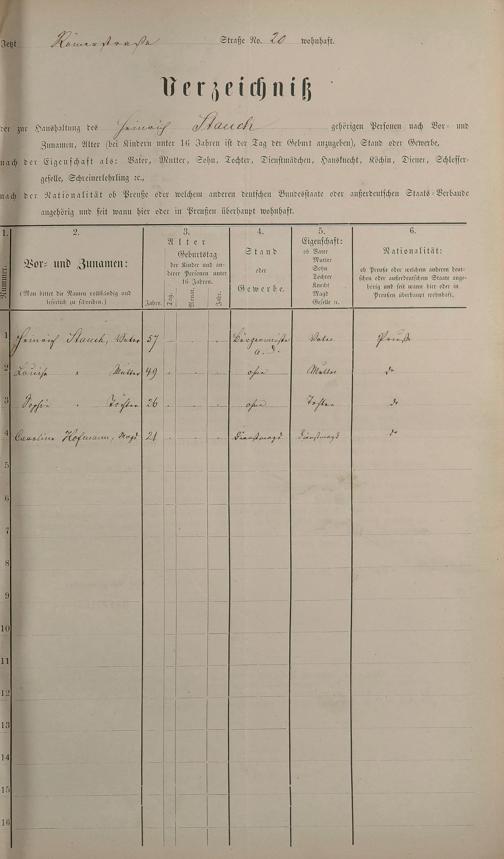 Jetzt Römerstrasse Straße No. 20 wohnhaft.
Verzeichniß
der zur Haushaltung des Heinrich Stauch gehörigen Personen nach Vor- und
Zunamen, Alter (bei Kindern unter 16 Jahren ist der Tag der Geburt anzugeben), Stand oder Gewerbe,
nach der Eigenschaft als: Vater, Mutter, Sohn, Tochter, Dienstmädchen, Hausknecht, Köchin, Diener, Schlosser-
geselle, Schreinerlehrling ꝛc.,
nach der Nationalität ob Preuße oder welchem anderen deutschen Bundesstaate oder außerdeutschen Staats-Verbande
angehörig und seit wann hier oder in Preußen überhaupt wohnhaft.
1. 2. 3. 4. 5. 6.
Nummer.
Vor- und Zunamen:
(Man bittet die Namen vollständig und
leserlich zu schreiben.)
Alter
Geburtstag
der Kinder und an-
derer Personen unter
16 Jahren.
Jahre. Tag. Monat. Jahr.
Stand
oder
Gewerbe.
Eigenschaft:
ob Vater
Mutter
Sohn
Tochter
Knecht
Magd
Geselle ꝛc.
Nationalität:
ob Preuße oder welchem anderen deut-
schen oder außerdeutschen Staate ange-
hörig und seit wann hier oder in
Preußen überhaupt wohnhaft.
1 Heinrich Stauch, Vater 57 Bürgermeister a. D. Vater Preuße
2 Louise " Mutter 49 ohne Mutter do
3 Sophie " Tochter 26 ohne Tochter do
4 Caroline Hofmann, Magd 21 Dienstmagd Dienstmagd do
5
6
7
8
9
10
11
12
13
14
15
16